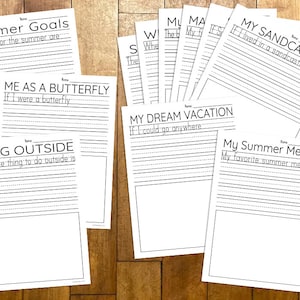 mer Goals
for the summer are
ME AS A BUTTERFLY
If I were a butterfly
G OUTSIDE
e thing to do outside is
S
W
My
MA
The
Wh
MY SANDCA
If I lived in a sandcast
MY DREAM VACATION
If I could go anywhere
My Summer Me
My favorite summer me